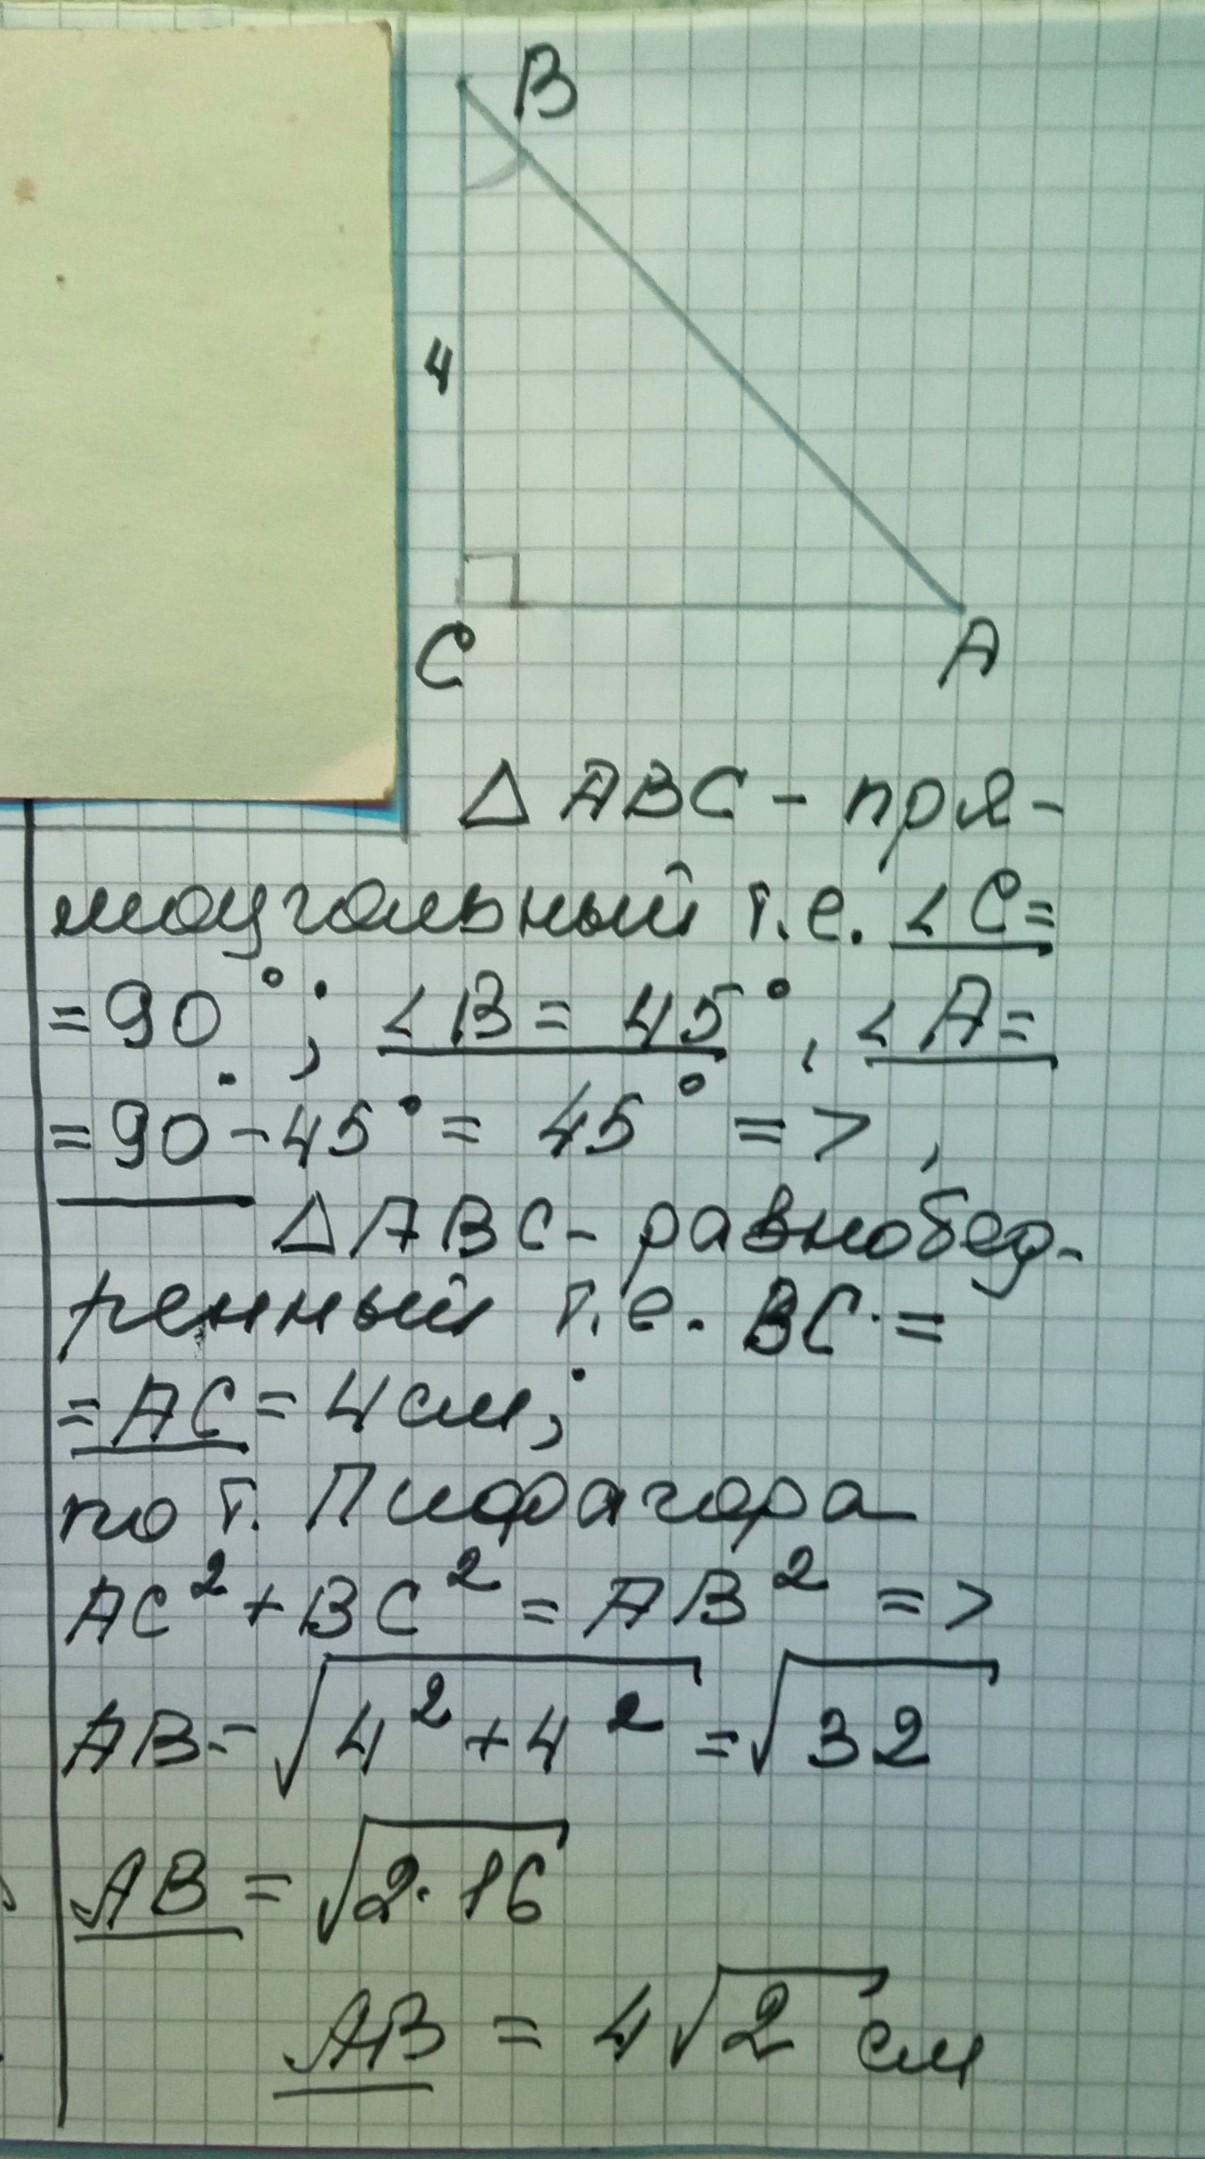 B
4
C
A
△ ABC - пря-
моугольный т.е. ∠C=
=90°; ∠B = 45°, ∠A=
=90°-45°= 45° =>,
△ABC- равнобед-
ренный т.е. BC =
=AC = 4см;
по т. Пифагора
AC²+BC²=AB² =>
AB=√4²+4²=√32
AB = √2·16
AB = 4√2 см